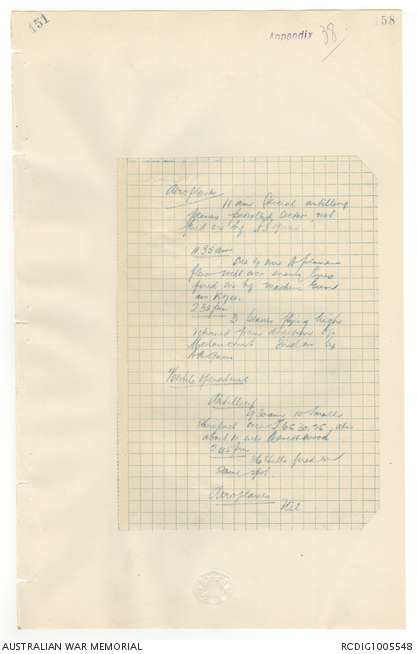 151
58
Appendix 38
Aeroplanes
11 am Several artillery
planes patrolled sector, not
fired on by A.A guns.
11.35 am
One of our A planes
flew well over enemy lines
fired on by machine guns
and Rifles.
2.35 pm
3 planes flying high
returned from direction of
fired on by
Hostile Operations
Artillery
9.30 am 10 small
shrapnel over
about 11
2.45 pm
shells fired on
same spot
Aeroplanes
Nil
AUSTRALIAN WAR MEMORIAL
RCDIG1005548